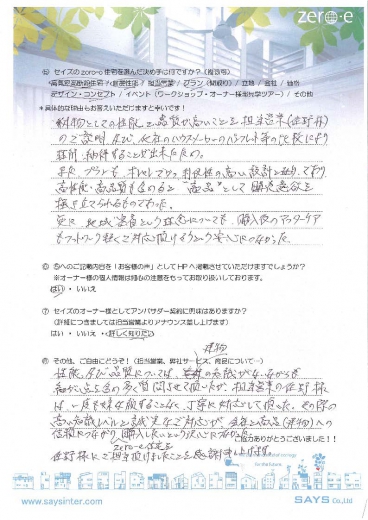 zero-e
⑤ セイズのzero-e住宅を選んだ決め手は何ですか?(複数可)
・高気密高断熱住宅(快適性能)/ 担当営業 / プラン(間取り)/ 立地 / 会社 / 価格
デザイン・コンセプト / イベント(ワークショップ・オーナー様宅見学ツアー)/ その他
*具体的な理由もお答えいただけますと幸いです!
建物としての性能と品質が高いことを担当営業(佐野様)
のご説明及び、他社のハウスメーカーのパンフレット等の比較により
理解、納得することが出来たため。
また、プランも
高性能・高品質も含めると"商品"として購買意欲を
掻き立てられるものでした。
更に、地域密着という点についても、購入後のアフターケア
もフットワーク軽くご対応頂けるという安心につながった。
⑥ ⑤へのご記載内容を「お客様の声」としてHPへ掲載させていただけますでしょうか?
※オーナー様の個人情報は細心の注意をもってお取り扱いしております。
はい ・ いいえ
⑦ セイズのオーナー様としてアンバサダー契約に興味はありますか?
(詳細につきましては担当営業よりアナウンス差し上げます)
はい ・ いいえ ・ 詳しく知りたい
⑧ その他、ご自由にどうぞ!(担当営業、弊社サービス、商品について…)
建物
性能、及び品質については、知識がない中でも
質問させて頂いたが、担当営業の佐野様
は、一度も嫌な顔することなく、丁寧に対応して頂いた。その際の
高い知識レベルと誠実なご対応が、会社と商品(建物)への
信頼につながり、購入したいという決心に
ご協力ありがとうございました!!
zero-e 住宅を
佐野様にご担当頂けましたことを感謝申し上げます。
for the future
www.saysinter.com
SAYS Co.,Ltd